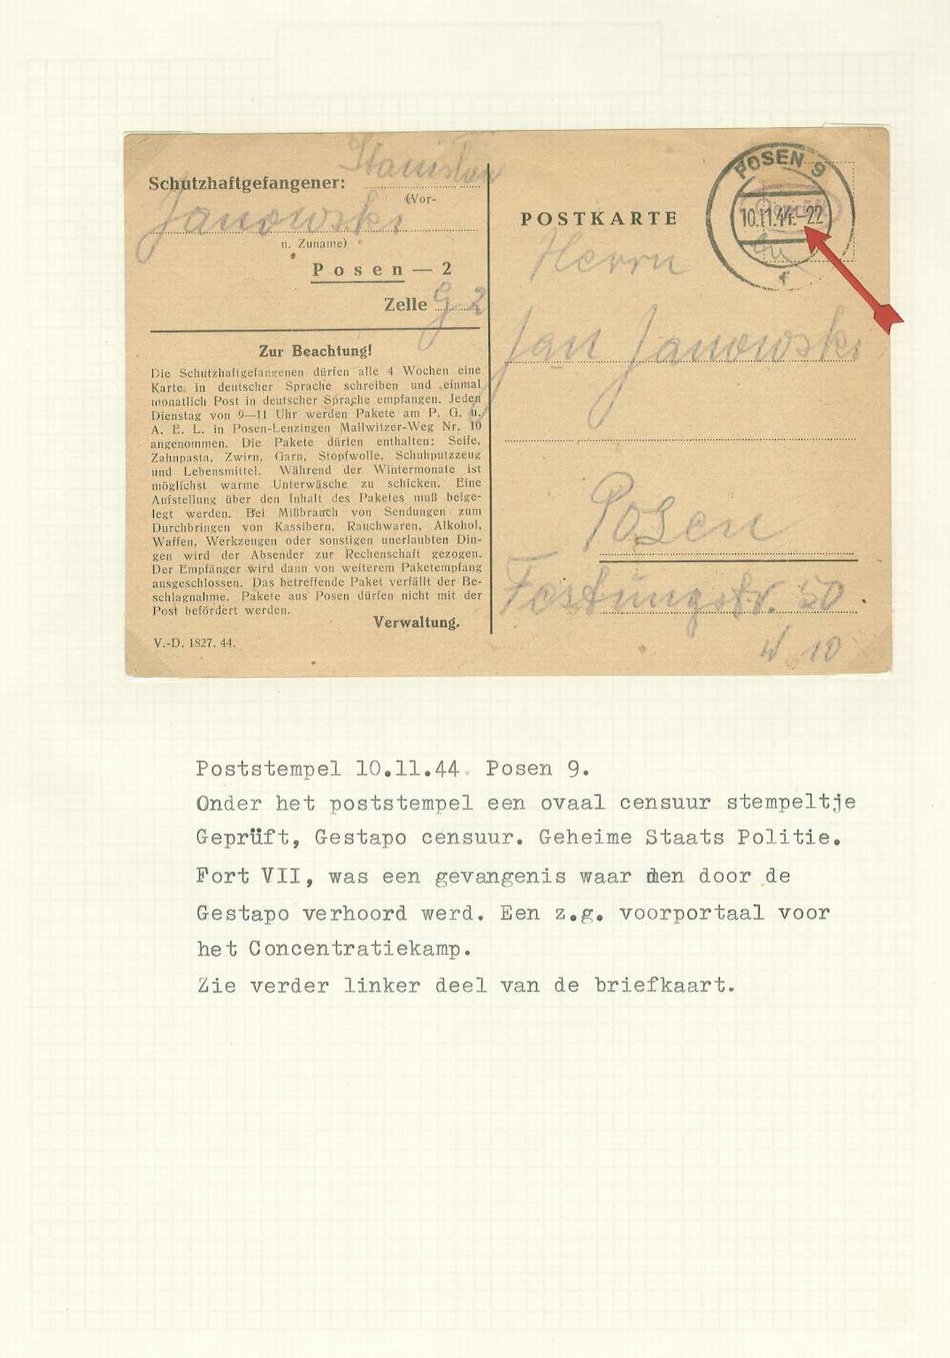 Schutzhaftgefangener: Stanislav
(Vor-
Janowski
u. Zuname)
Posen — 2
Zelle G 2
Zur Beachtung!
Die Schutzhaftgefangenen dürfen alle 4 Wochen eine
Karte in deutscher Sprache schreiben und einmal
monatlich Post in deutscher Sprache empfangen. Jeden
Dienstag von 9—11 Uhr werden Pakete am P. G. u.
A. E. L. in Posen-Lenzingen Mallwitzer-Weg Nr. 10
angenommen. Die Pakete dürfen enthalten: Seife,
Zahnpasta, Zwirn, Garn, Stopfwolle, Schuhputzzeug
und Lebensmittel. Während der Wintermonate ist
möglichst warme Unterwäsche zu schicken. Eine
Aufstellung über den Inhalt des Paketes muß beige-
legt werden. Bei Mißbrauch von Sendungen zum
Durchbringen von Kassibern, Rauchwaren, Alkohol,
Waffen, Werkzeugen oder sonstigen unerlaubten Din-
gen wird der Absender zur Rechenschaft gezogen.
Der Empfänger wird dann von weiterem Paketempfang
ausgeschlossen. Das betreffende Paket verfällt der Be-
schlagnahme. Pakete aus Posen dürfen nicht mit der
Post befördert werden.
Verwaltung.
V.-D. 1827. 44.
POSTKARTE
POSEN 9
10.11.44.-22
f
Geprüft
Herrn
Jan Janowski
Posen
Festungstr. 50
W 10
Poststempel 10.11.44. Posen 9.
Onder het poststempel een ovaal censuur stempeltje
Geprüft, Gestapo censuur. Geheime Staats Politie.
Fort VII, was een gevangenis waar men door de
Gestapo verhoord werd. Een z.g. voorportaal voor
het Concentratiekamp.
Zie verder linker deel van de briefkaart.